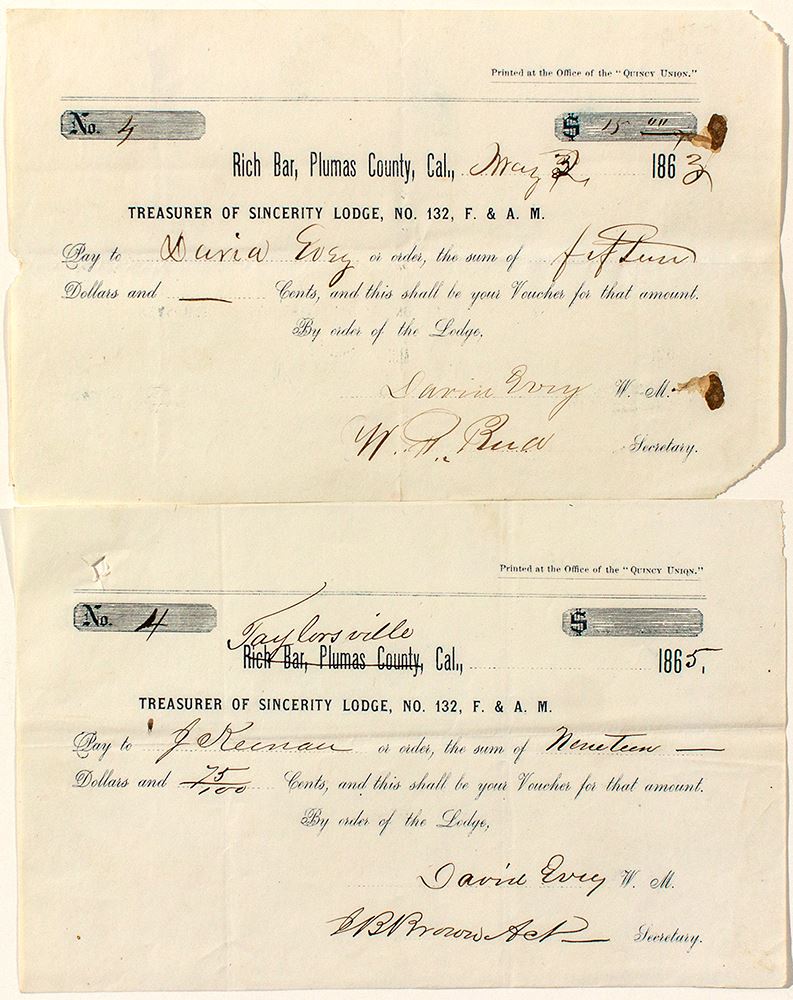 Printed at the Office of the "QUINCY UNION."
No. 4 $ 15 00
Rich Bar, Plumas County, Cal., May 3, 1863
TREASURER OF SINCERITY LODGE, NO. 132, F. & A. M.
Pay to David Evey or order, the sum of fifteen
Dollars and — Cents, and this shall be your Voucher for that amount.
By order of the Lodge,
David Evey W. M.
W. Secretary.
Printed at the Office of the "QUINCY UNION."
No. 4 $
Taylorsville
Rich Bar, Plumas County, Cal., 1865.
TREASURER OF SINCERITY LODGE, NO. 132, F. & A. M.
Pay to J Keenan or order, the sum of Nineteen —
Dollars and 75/100 Cents, and this shall be your Voucher for that amount.
By order of the Lodge,
David Evey W. M.
J B Brown Act — Secretary.